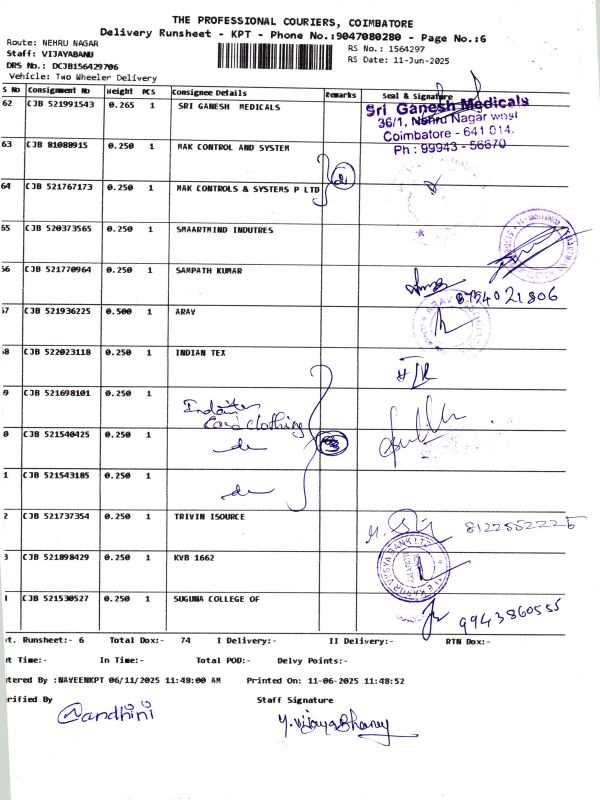 THE PROFESSIONAL COURIERS, COIMBATORE
Delivery Runsheet - KPT - Phone No.:9047080280 - Page No.:6
Route: NEHRU NAGAR
RS No.: 1564297
Staff: VIJAYABANU
RS Date: 11-Jun-2025
DRS No.: DCJB156429706
Vehicle: Two Wheeler Delivery
S No Consignment No Weight PCS Consignee Details Remarks Seal & Signature
62 CJB 521991543 0.265 1 SRI GANESH MEDICALS
Sri Ganesh Medicals
36/1, Nehru Nagar west
Coimbatore - 641 014.
Ph : 99943 - 56670
63 CJB 81088915 0.250 1 MAK CONTROL AND SYSTEM
64 CJB 521767173 0.250 1 MAK CONTROLS & SYSTEMS P LTD
65 CJB 520373565 0.250 1 SMAARTMIND INDUTRES
66 CJB 521770964 0.250 1 SAMPATH KUMAR
8754021806
67 CJB 521936225 0.500 1 ARAV
68 CJB 522023118 0.250 1 INDIAN TEX
9 CJB 521698101 0.250 1
Care clothing
0 CJB 521540425 0.250 1
1 CJB 521543185 0.250 1
2 CJB 521737354 0.250 1 TRIVIN ISOURCE
3 CJB 521898429 0.250 1 KVB 1662
CJB 521530527 0.250 1 SUGUNA COLLEGE OF
9943860555
t. Runsheet:- 6 Total Dox:- 74 I Delivery:- II Delivery:- RTN Dox:-
rt Time:- In Time:- Total POD:- Delvy Points:-
tered By :NAVEENKPT 06/11/2025 11:48:00 AM Printed On: 11-06-2025 11:48:52
erified By Staff Signature
Nandhini Y. Vijaya Bhanu